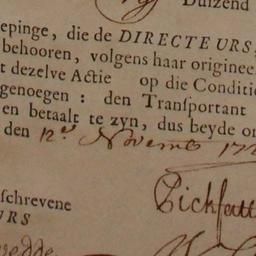 Duizend
epinge, die de DIRECTEURS,
behooren, volgens haar originee
t dezelve Actie op die Conditie
genoegen : den Transportant
en betaalt te zyn, dus beyde on
den 12e Novemb 172
schrevene
URS